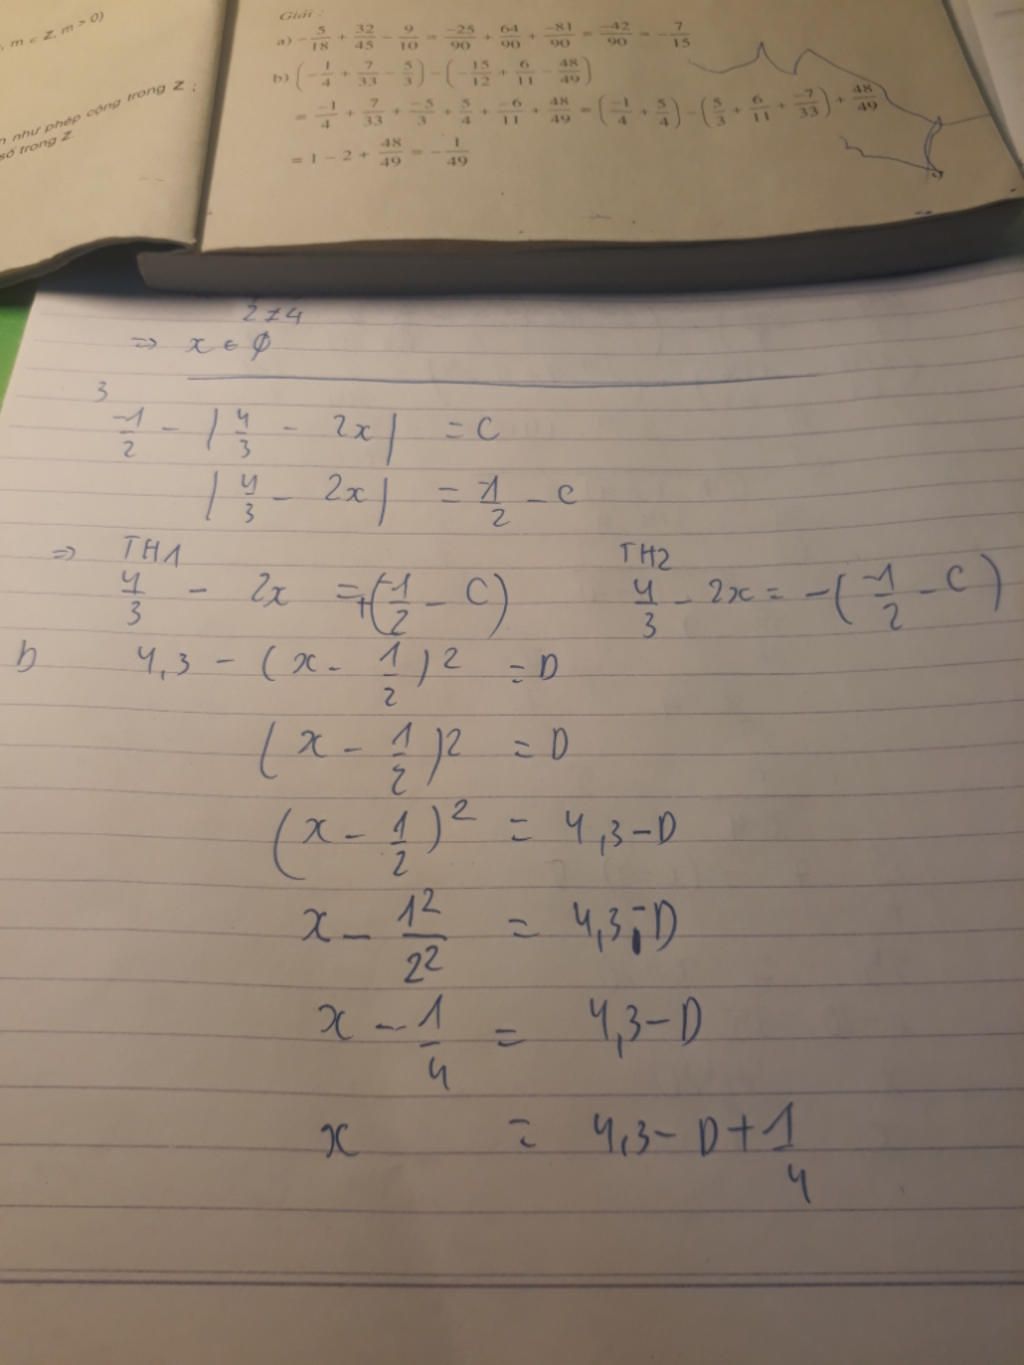 , m ∈ Z, m > 0)
n như phép cộng trong Z ;
số trong Z.
Giải :
a) -5/18 + 32/45 - 9/10 = -25/90 + 64/90 + -81/90 = -42/90 = -7/15
b) (-1/4 + 7/33 - 5/3) - (-15/12 + 6/11 - 48/49)
= -1/4 + 7/33 + -5/3 + 5/4 + -6/11 + 48/49 = (-1/4 + 5/4) - (5/3 + 6/11 + -7/33) + 48/49
= 1 - 2 + 48/49 = -1/49
2 ≠ 4
=> x ∈ ∅
3
-1/2 - |4/3 - 2x| = C
|4/3 - 2x| = -1/2 - C
=> TH1 TH2
4/3 - 2x = +(-1/2 - C) 4/3 - 2x = -(-1/2 - C)
b 4,3 - (x - 1/2)2 = D
(x - 1/2)2 = D
(x - 1/2)² = 4,3 - D
x - 1²/2² = 4,3 - D
x - 1/4 = 4,3 - D
x = 4,3 - D + 1/4